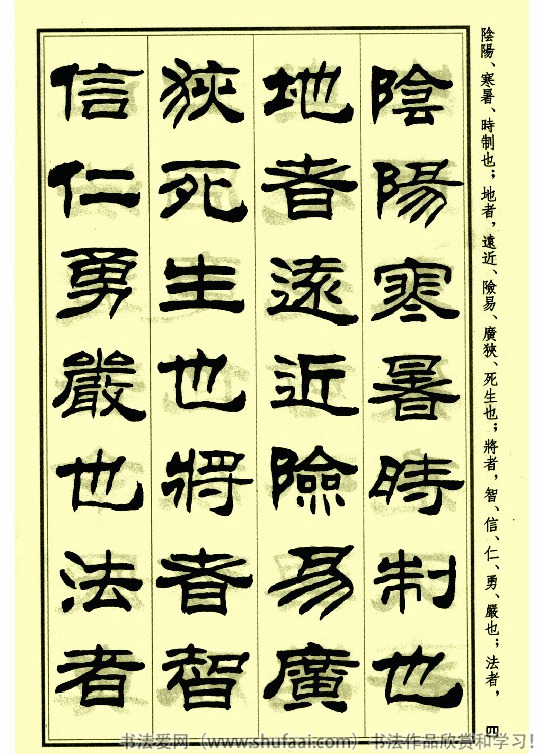 陰陽、寒暑、時制也；地者，遠近、險易、廣狹、死生也；將者，智、信、仁、勇、嚴也；法者，
陰陽寒暑時制也
地者遠近險易廣
狹死生也將者智
信仁勇嚴也法者
四
书法爱网（www.shufaai.com）书法作品欣赏和学习！